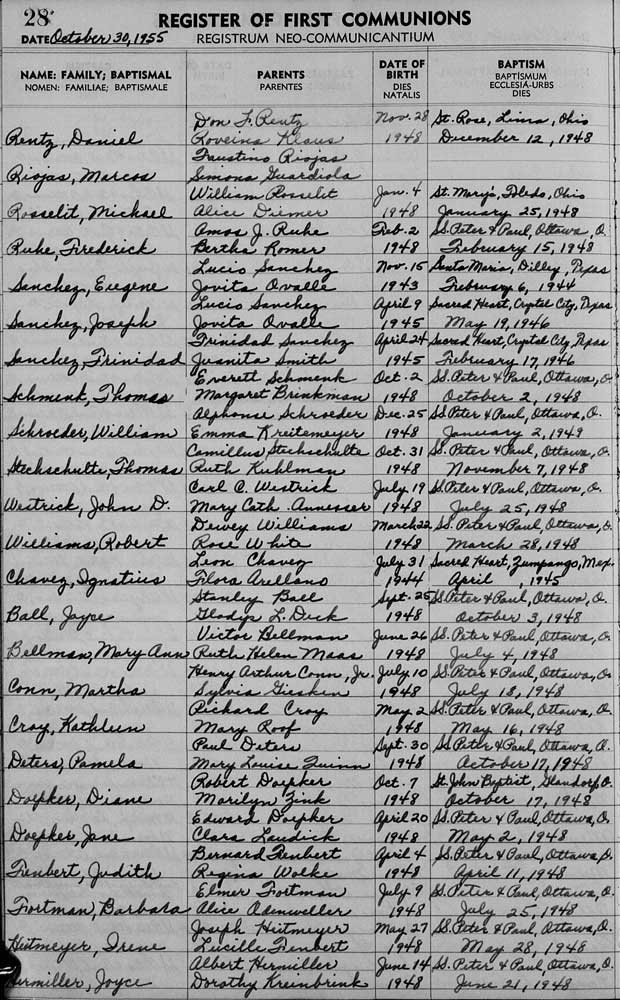 28
REGISTER OF FIRST COMMUNIONS
DATE October 30, 1955 REGISTRUM NEO-COMMUNICANTIUM
NAME: FAMILY; BAPTISMAL PARENTS DATE OF BIRTH BAPTISM
NOMEN: FAMILIAE; BAPTISMALE PARENTES DIES NATALIS BAPTISMUM ECCLESIÁ-URBS DIES
Don F. Rentz Nov. 28 St. Rose, Lima, Ohio
Rentz, Daniel Roveina Klaus 1948 December 12, 1948
Faustino Riojas
Riojas, Marcos Simona Guardiola
William Rosselit Jan. 4 St. Mary's, Toledo, Ohio
Rosselit, Michael Alice Diemer 1948 January 25, 1948
Amos J. Ruhe Feb. 2 SS. Peter & Paul, Ottawa, O.
Ruhe, Frederick Bertha Romer 1948 February 15, 1948
Lucio Sanchez Nov. 15 Santa Maria, Dilley, Texas
Sanchez, Eugene Jovita Ovalle 1943 February 6, 1944
Lucio Sanchez April 9 Sacred Heart, Crystal City, Texas
Sanchez, Joseph Jovita Ovalle 1945 May 19, 1946
Trinidad Sanchez April 24 Sacred Heart, Crystal City, Texas
Sanchez, Trinidad Juanita Smith 1945 February 17, 1946
Everett Schmenk Oct. 2 SS. Peter & Paul, Ottawa, O.
Schmenk, Thomas Margaret Brinkman 1948 October 2, 1948
Alphonse Schroeder Dec. 25 SS. Peter & Paul, Ottawa, O.
Schroeder, William Emma Kreitemeyer 1948 January 2, 1949
Camillus Steckschulte Oct. 31 SS. Peter & Paul, Ottawa, O.
Steckschulte, Thomas Ruth Kuhlman 1948 November 7, 1948
Carl C. Westrick July 19 SS. Peter & Paul, Ottawa, O.
Westrick, John D. Mary Cath. Annesser 1948 July 25, 1948
Dewey Williams March 22 SS. Peter & Paul, Ottawa, O.
Williams, Robert Rose White 1948 March 28, 1948
Leon Chavez July 31 Sacred Heart, Zumpango, Mex.
Chavez, Ignatius Flora Arellano 1944 April , 1945
Stanley Ball Sept. 25 SS. Peter & Paul, Ottawa, O.
Ball, Joyce Gladys L. Deck 1948 October 3, 1948
Victor Bellman June 26 SS. Peter & Paul, Ottawa, O.
Bellman, Mary Ann Ruth Helen Maas 1948 July 4, 1948
Henry Arthur Conn, Jr. July 10 SS. Peter & Paul, Ottawa, O.
Conn, Martha Sylvia Giesken 1948 July 18, 1948
Richard Croy May 2 SS. Peter & Paul, Ottawa, O.
Croy, Kathleen Mary Roof 1948 May 16, 1948
Paul Deters Sept. 30 SS. Peter & Paul, Ottawa, O.
Deters, Pamela Mary Louise Quinn 1948 October 17, 1948
Robert Doepker Oct. 7 St. John Baptist, Glandorf, O.
Doepker, Diane Marilyn Zink 1948 October 17, 1948
Edward Doepker April 20 SS. Peter & Paul, Ottawa, O.
Doepker, Jane Clara Laudick 1948 May 2, 1948
Bernard Fenbert April 4 SS. Peter & Paul, Ottawa, O.
Fenbert, Judith Regina Wolke 1948 April 11, 1948
Elmer Fortman July 9 SS. Peter & Paul, Ottawa, O.
Fortman, Barbara Alice Odenweller 1948 July 25, 1948
Joseph Heitmeyer May 27 SS. Peter & Paul, Ottawa, O.
Heitmeyer, Irene Lucille Fenbert 1948 May 28, 1948
Albert Hermiller June 14 SS. Peter & Paul, Ottawa, O.
Hermiller, Joyce Dorothy Kreinbrink 1948 June 21, 1948